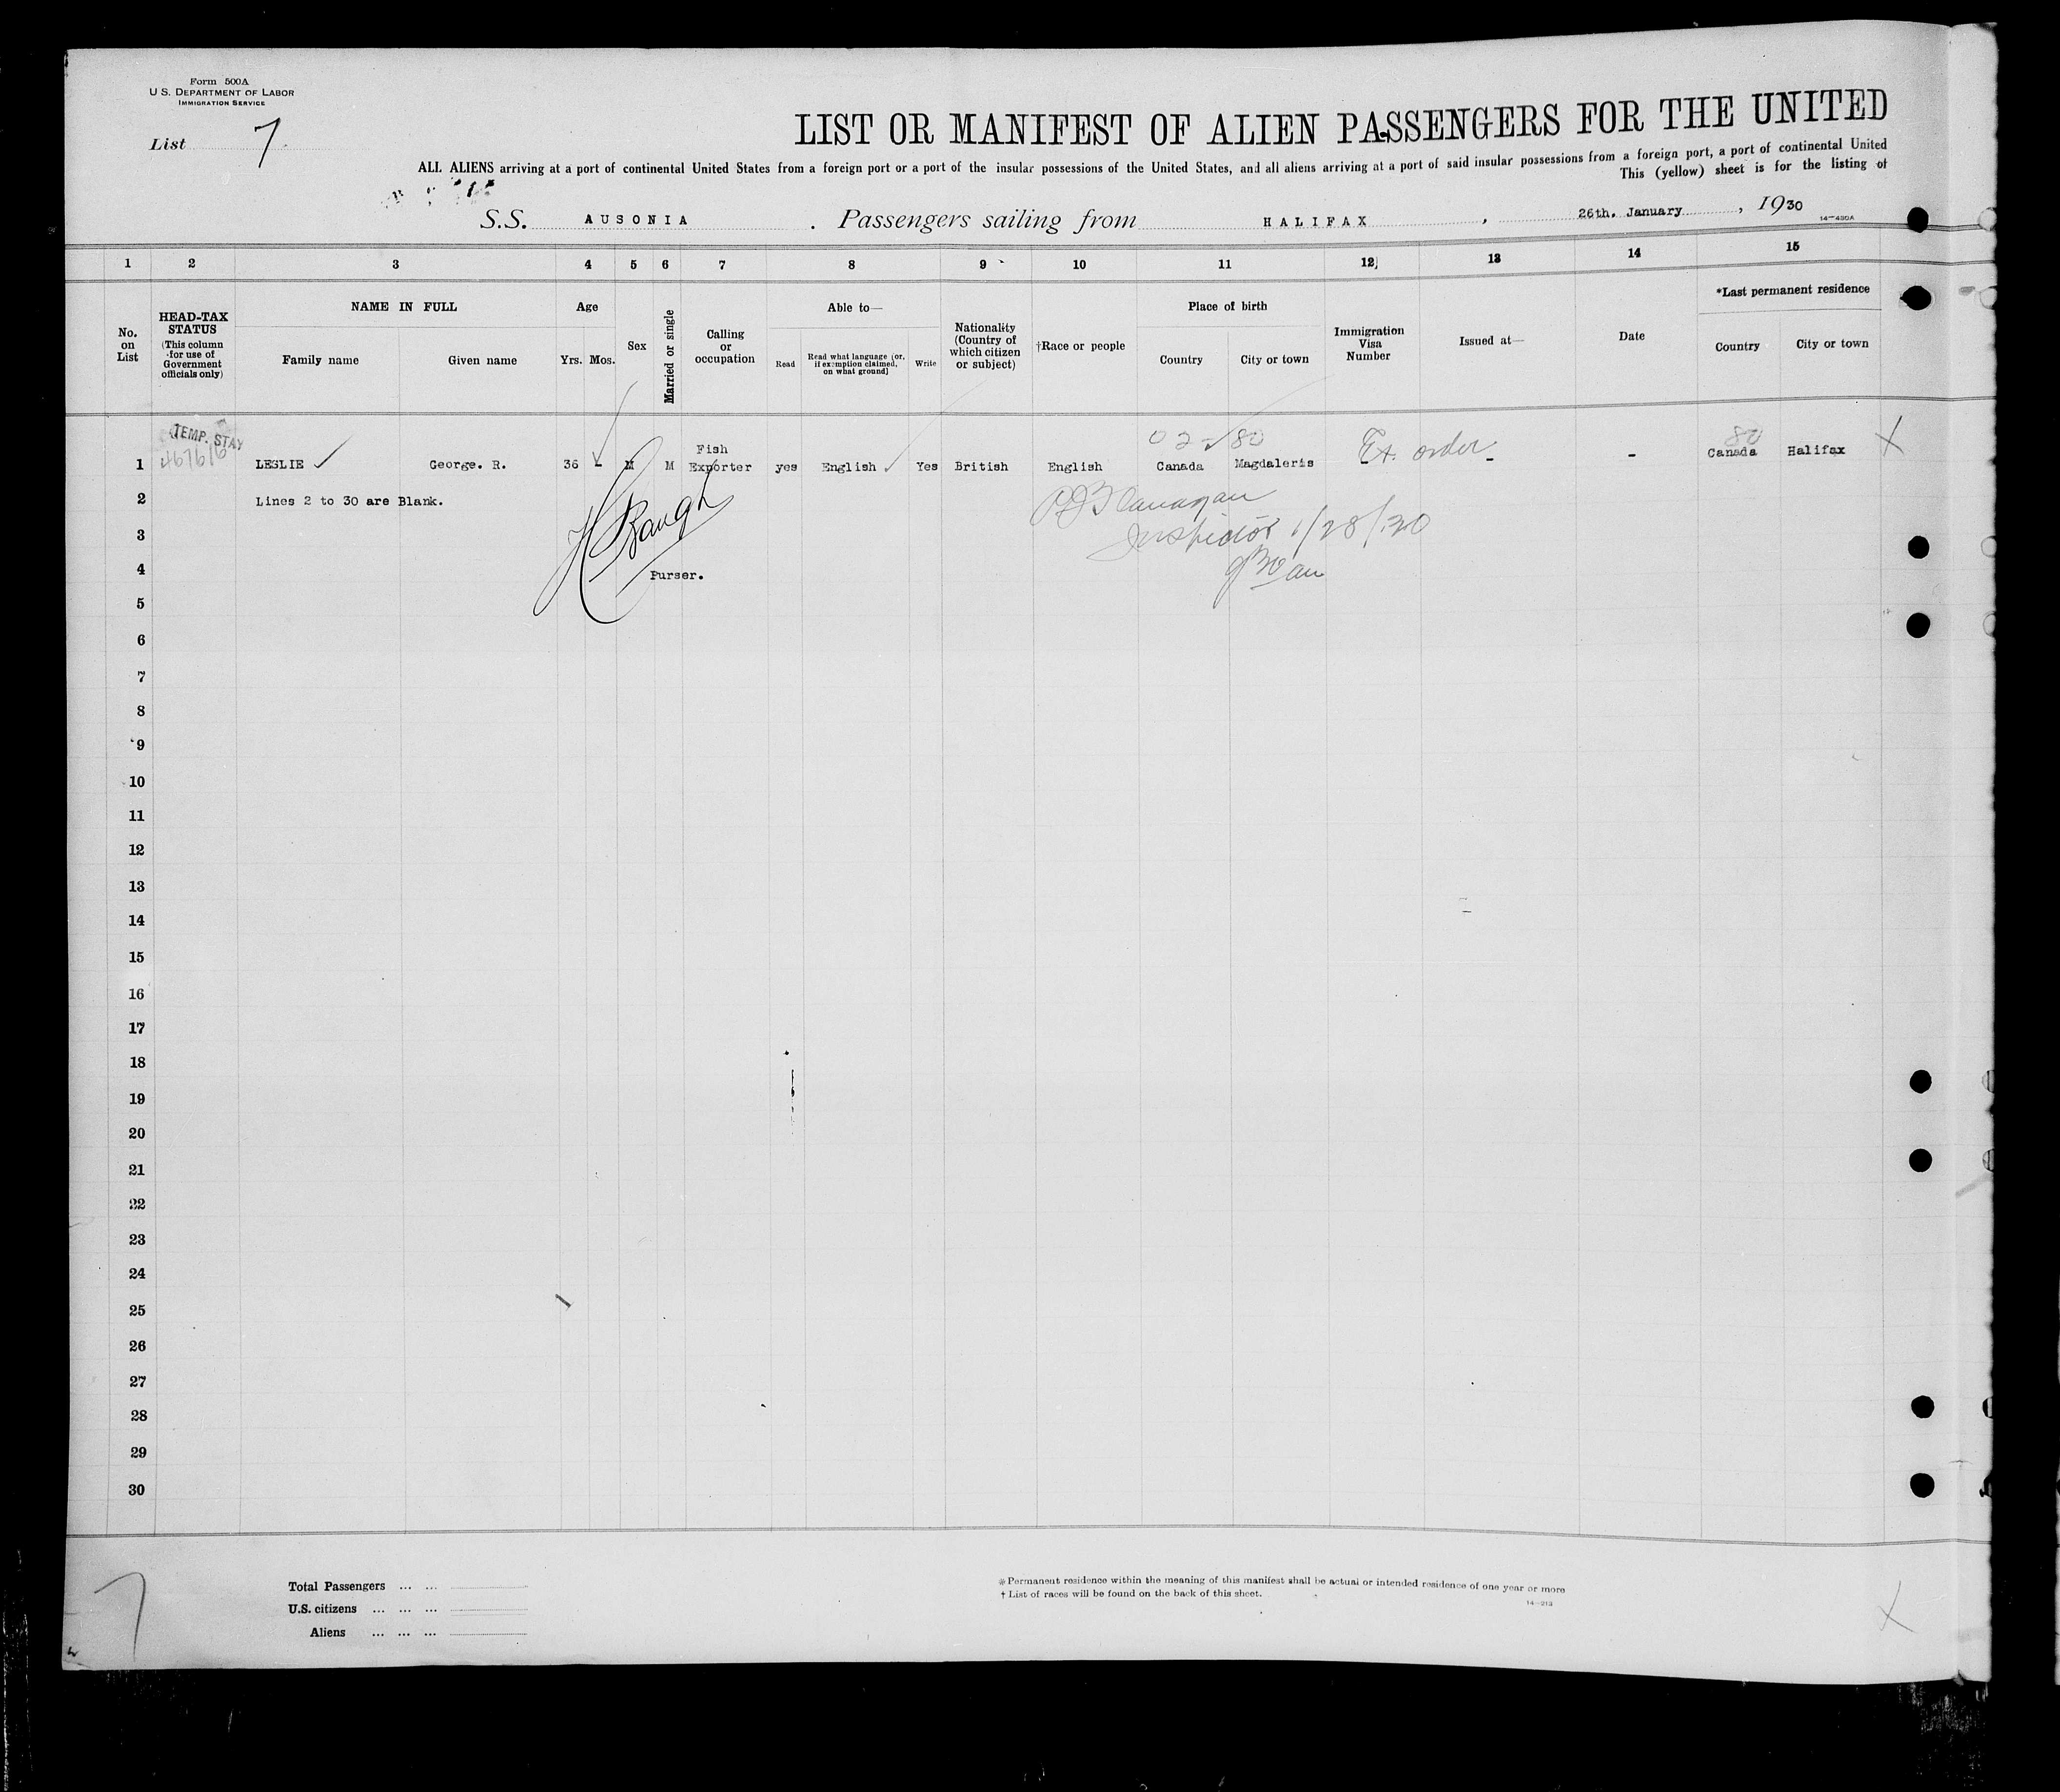 Form 500A
U S. DEPARTMENT OF LABOR
IMMIGRATION SERVICE
List 7
LIST OR MANIFEST OF ALIEN PASSENGERS FOR THE UNITED
ALL ALIENS arriving at a port of continental United States from a foreign port or a port of the insular possessions of the United States, and all aliens arriving at a port of said insular possessions from a foreign port, a port of continental United
This (yellow) sheet is for the listing of
S.S. AUSONIA . Passengers sailing from HALIFAX , 26th. January , 1930
14—430A
1 2 3 4 5 6 7 8 9 10 11 12 13 14 15
No. on List
HEAD-TAX STATUS (This column for use of Government officials only)
NAME IN FULL
Family name Given name
Age
Yrs. Mos.
Sex
Married or single
Calling or occupation
Able to—
Read
Read what language [or, if exemption claimed, on what ground]
Write
Nationality (Country of which citizen or subject)
†Race or people
Place of birth
Country City or town
Immigration Visa Number
Issued at—
Date
*Last permanent residence
Country City or town
TEMP. STAY
02 80 80
1 LESLIE George. R. 36 - M M Fish Exporter yes English Yes British English Canada Magdaleris Ex. order - - Canada Halifax X
2 Lines 2 to 30 are Blank.
H Baugh
Purser.
Flanagan
Inspector 1/28/30
930 am
3
4
5
6
7
8
9
10
11
12
13
14
15
16
17
18
19
20
21
22
23
24
25
26
27
28
29
30
7
Total Passengers ... ...
U.S. citizens ... ... ...
Aliens ... ... ...
* Permanent residence within the meaning of this manifest shall be actual or intended residence of one year or more
† List of races will be found on the back of this sheet.
14—213
X